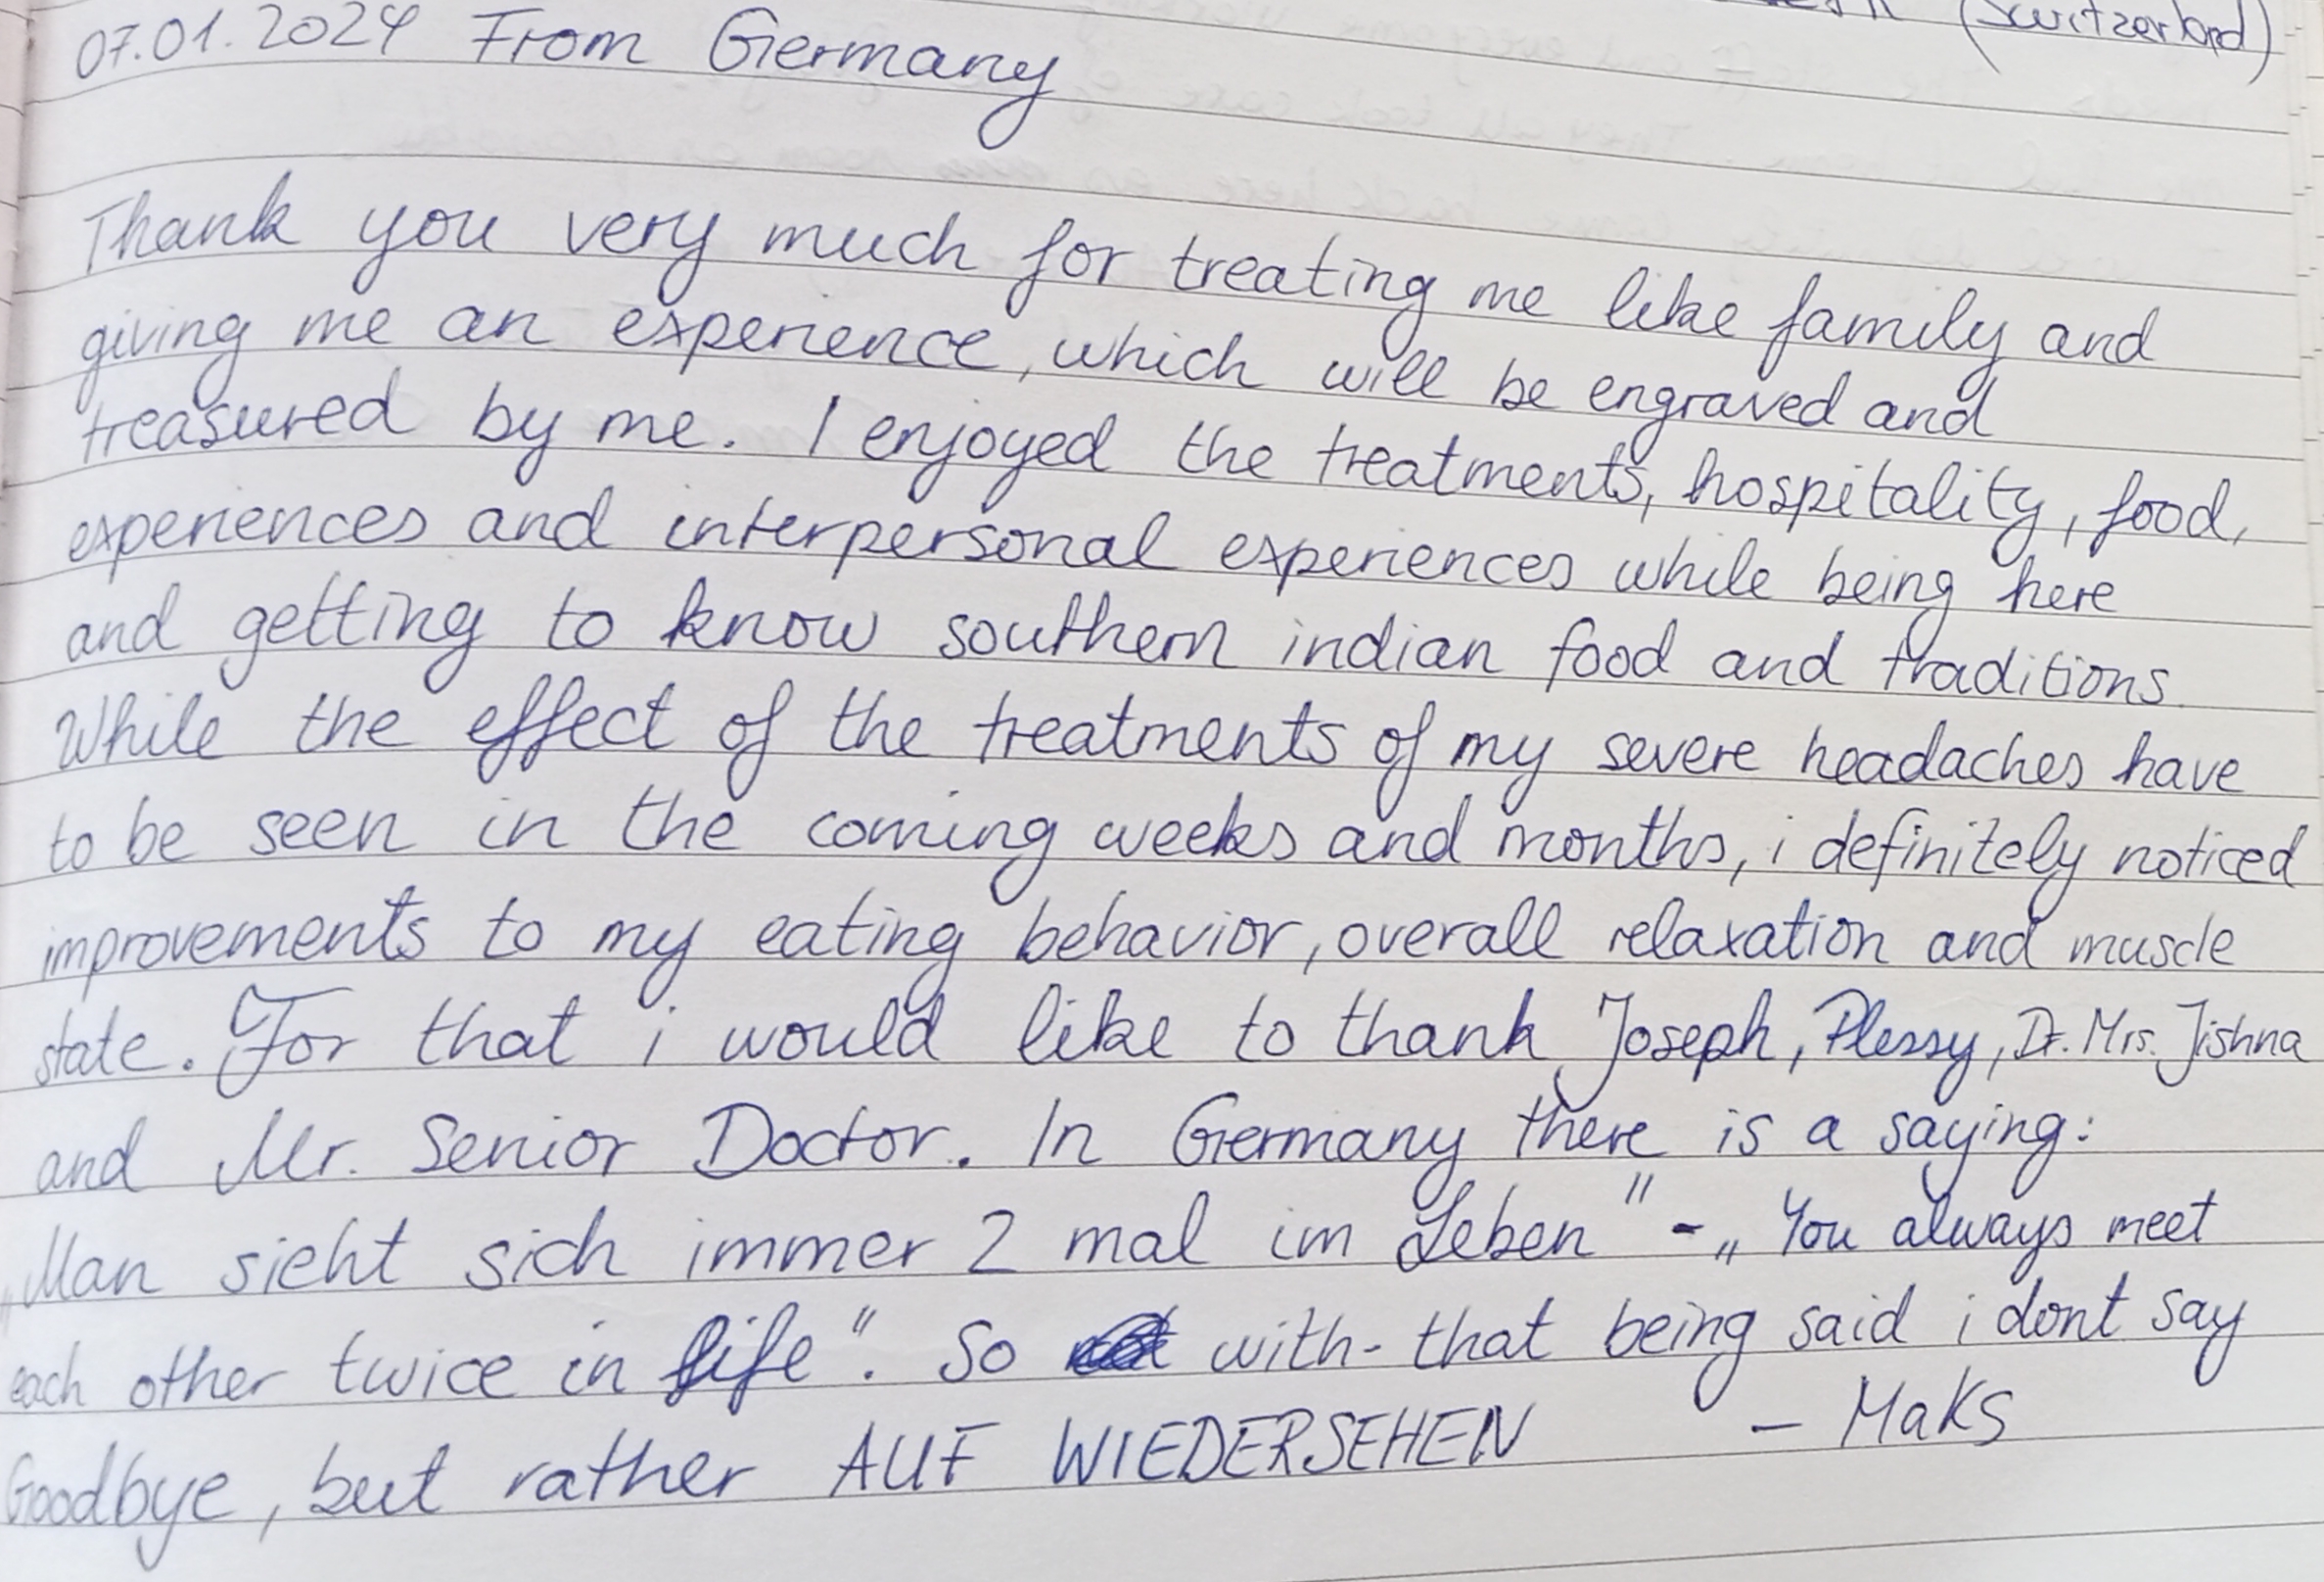 (Switzerland)
07.01.2024 From Germany
Thank you very much for treating me like family and
giving me an experience, which will be engraved and
treasured by me. I enjoyed the treatments, hospitality, food,
experiences and interpersonal experiences while being here
and getting to know southern indian food and traditions.
While the effect of the treatments of my severe headaches have
to be seen in the coming weeks and months, i definitely noticed
improvements to my eating behavior, overall relaxation and muscle
state. For that i would like to thank Joseph, Plessy, Dr. Mrs. Jishna
and Mr. Senior Doctor. In Germany there is a saying:
„Man sieht sich immer 2 mal im Leben" - „You always meet
each other twice in life". So with-that being said i dont say
Goodbye, but rather AUF WIEDERSEHEN - Maks